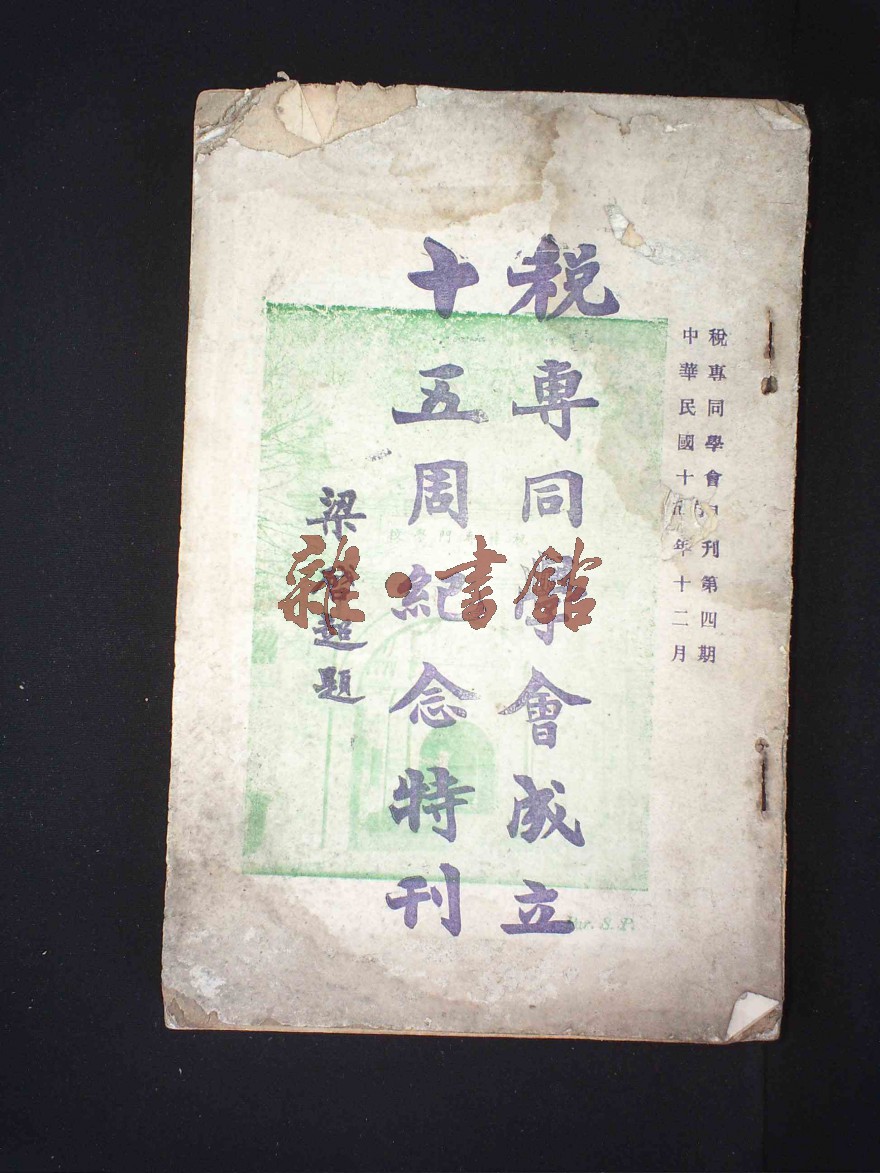 稅專同學會刊第四期
中華民國十年十二月
税專同學會成立
十五周紀念特刊
梁啓超題
雜·書館
S. P.